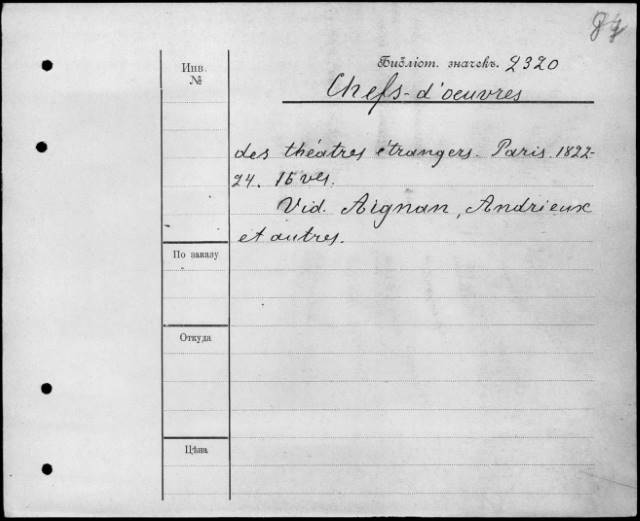 Инв. №
Библіот. значекъ. 2320
Chefs-d'oeuvres
des théatres étrangers. Paris. 1822-
24. 15 vls.
Vid. Aignan, Andrieux
et autres.
По заказу
Откуда
Цѣна